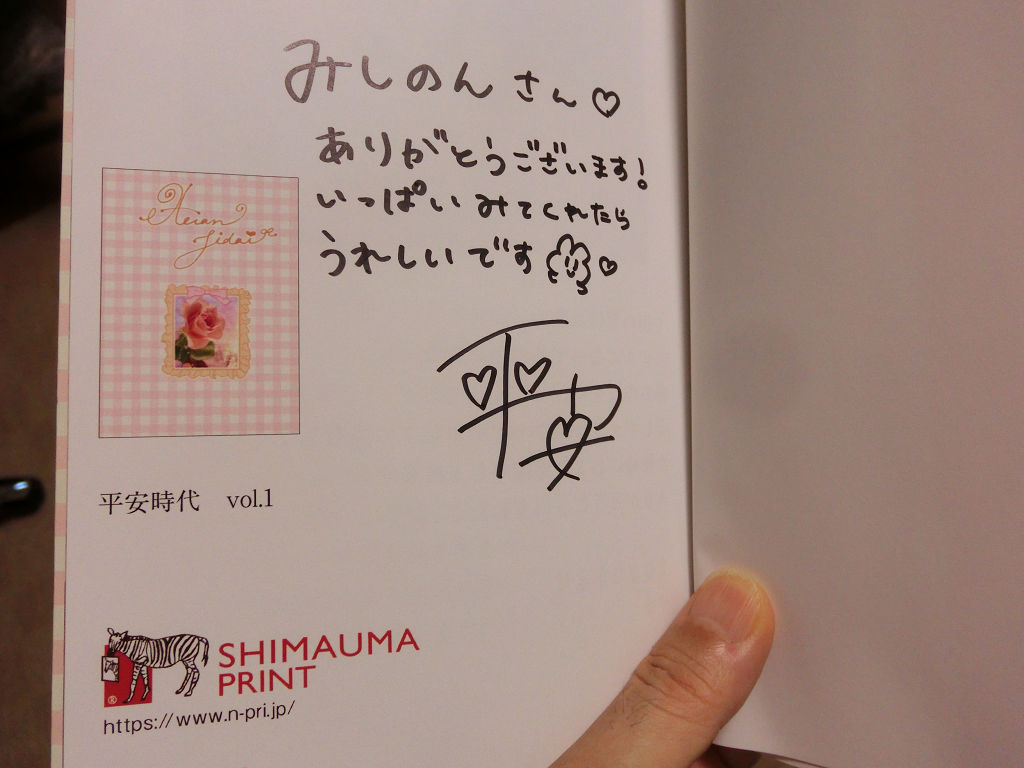 みしのんさん♡
ありがとうございます!
いっぱいみてくれたら
うれしいです♡
Heian
Jidai
平安
平安時代 vol.1
SHIMAUMA
PRINT
®
https://www.n-pri.jp/